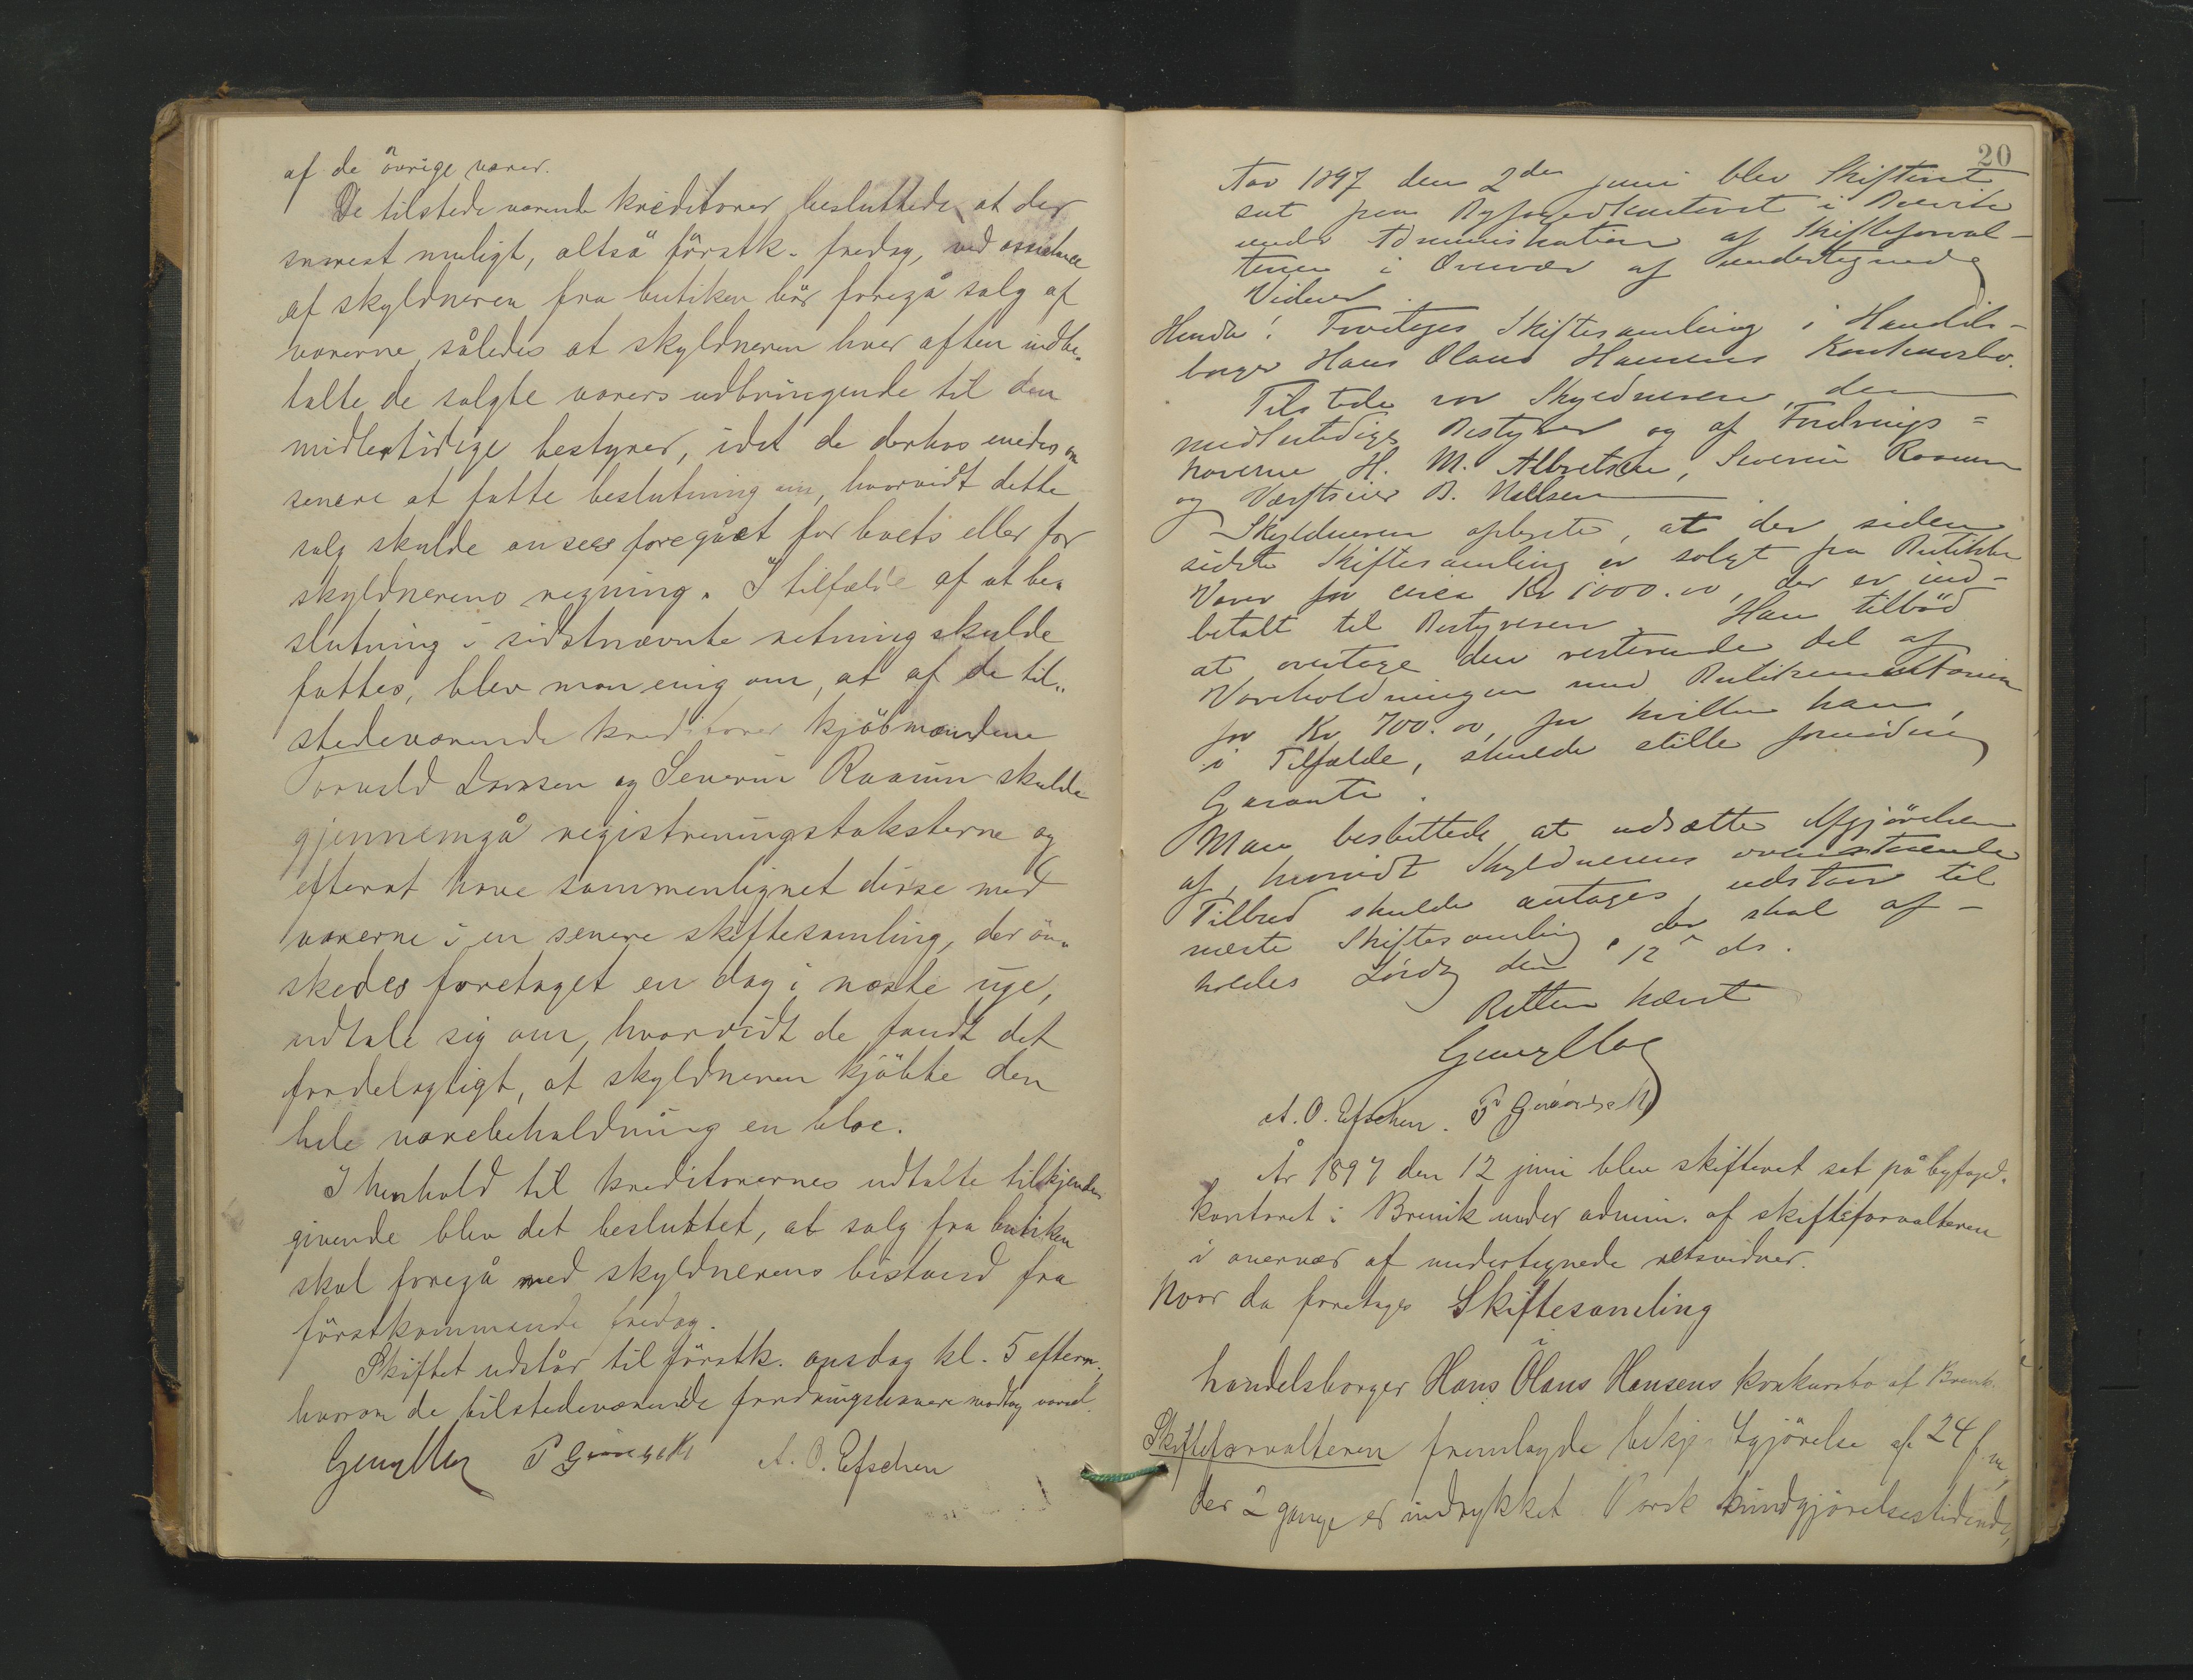 af de øvrige varer.
De tilstede varende kreditorer besluttede, at der
snarest muligt, altså förstk. fredag, ved assistance
af skyldneren fra butiken bör foregå salg af
varerne, således at skyldneren hver aften indbe-
talte de solgte varers udbringende til den
midlertidige bestyrer, idet de derhos enedes om
senere at fatte beslutning om, hvorvidt dette
salg skulde ansees foregået for boets eller for
skyldnerens regning. I tilfælde af at be-
slutning i sidstnævnte retning skulde
fattes, blev man enig om, at af de til-
stedeværende kreditorer kjöbmændene
Torvald Larsen og Severin Raaum skulde
gjennemgå registreringstaksterne og
efterat have sammenlignet disse med
varerne i en senere skiftesamling, der ön-
skedes foretaget en dag i næste uge,
udtale sig om, hvorvidt de fandt det
fordelagtigt, at skyldneren kjöbte den
hele varebeholdning en bloc.
I henhold til kreditorernes udtalte tilkjende-
givende blev det besluttet, at salg fra butiken
skal foregå med skyldnerens bistand fra
förstkommende fredag.
Skiftet udstår til förstk. onsdag kl. 5 efterm.,
hvorom de tilstedeværende fordringshavere modtog varsel.
A. O. Efschen
20
Aar 1897 den 2den juni blev Skifteret
sat paa Byfogedkontoret i Brevik
under Administration af Skifteforval-
teren i Overvær af undertegnede
Vidner.
Hvorda: Foretoges Skiftesamling i Handels-
borger Hans Olaus Hansens Konkursbo.
Tilstede var Skyldneren, den
midlertidige Bestyrer og af Fordrings-
haverne H. M. Albretsen, Severin Raaum
og Værftseier B. Nielsen
Skyldneren oplyste, at der siden
sidste Skiftesamling er solgt fra Butikken
Varer for circa Kr 1000.00, der er ind-
betalt til Bestyreren. Han tilbød
at overtage den resterende del af
Vareholdningen med Butikinventarium
for Kr. 700.00, for hvilken han,
i Tilfælde, skulde stille fornøden
Garanti.
Man besluttede at udsætte Afgjörelsen
af, hvorvidt Skyldnerens ovenstaaende
Tilbud skulde antages, udstaar til
næste Skiftesamling, der skal af-
holdes Lördag den 12te ds.
Retten hævet
A. O. Efschen.
År 1897 den 12 juni blev skifteret sat på byfoged-
kontoret i Brevik under admin. af skifteforvalteren
i overvær af undertegnede retsvidner.
Hvor da foretoges Skiftesamling
i
handelsborger Hans Olaus Hansens konkursbo af Brevik.
Skifteforvalteren fremlagde bekjendtgjörelse af 24 f. m.,
der 2 gange er indrykket Norsk kundgjörelsestidende,